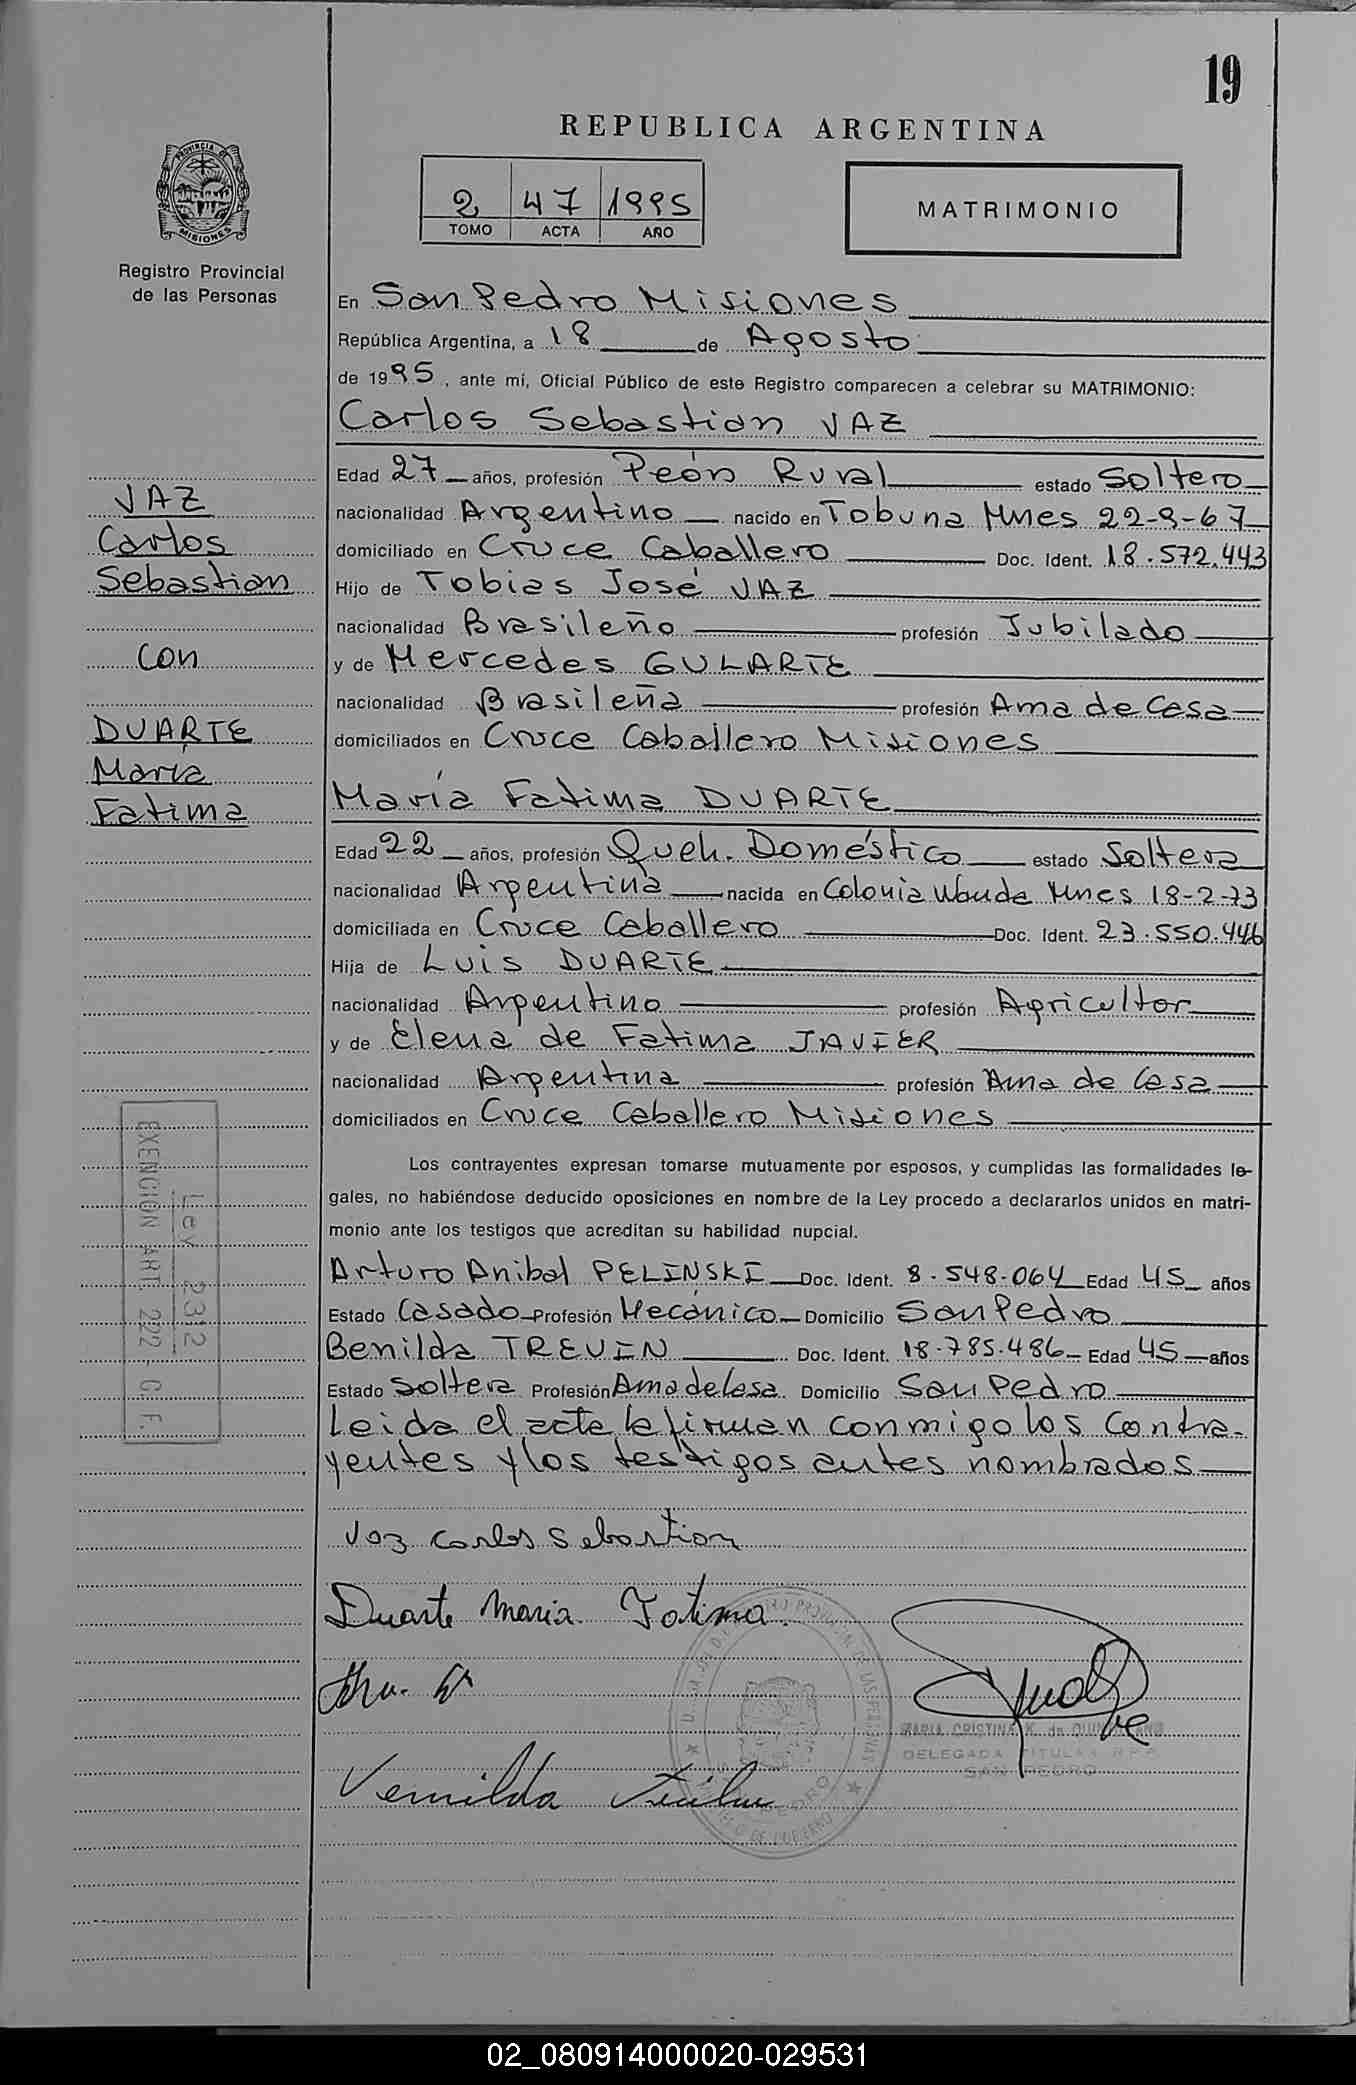 19
REPUBLICA ARGENTINA
2 47 1995
TOMO ACTA AÑO
MATRIMONIO
PROVINCIA DE
MISIONES
Registro Provincial
de las Personas
En San Pedro Misiones
República Argentina, a 18 de Agosto
de 1995, ante mí, Oficial Público de este Registro comparecen a celebrar su MATRIMONIO:
Carlos Sebastian VAZ
Edad 27 años, profesión Peón Rural estado Soltero
nacionalidad Argentino nacido en Tobuna Mnes 22-9-67
domiciliado en Cruce Caballero Doc. Ident. 18.572.443
Hijo de Tobias José VAZ
nacionalidad Brasileño profesión Jubilado
y de Mercedes GULARTE
nacionalidad Brasileña profesión Ama de Casa
domiciliados en Cruce Caballero Misiones
María Fatima DUARTE
Edad 22 años, profesión Queh. Doméstico estado Soltera
nacionalidad Argentina nacida en Colonia Wanda Mnes 18-2-73
domiciliada en Cruce Caballero Doc. Ident. 23.550.446
Hija de Luis DUARTE
nacionalidad Argentino profesión Agricultor
y de Elena de Fatima JAVIER
nacionalidad Argentina profesión Ama de Casa
domiciliados en Cruce Caballero Misiones
Los contrayentes expresan tomarse mutuamente por esposos, y cumplidas las formalidades le-
gales, no habiéndose deducido oposiciones en nombre de la Ley procedo a declararlos unidos en matri-
monio ante los testigos que acreditan su habilidad nupcial.
Arturo Anibal PELINSKI Doc. Ident. 8.548.064 Edad 45 años
Estado Casado Profesión Mecánico Domicilio San Pedro
Benilda TREVIN Doc. Ident. 18.785.486 Edad 45 años
Estado Soltera Profesión Ama de Casa Domicilio San Pedro
Leida el acta la firman conmigo los contra-
yentes y los testigos antes nombrados
Vaz Carlos Sebastian
Duarte Maria Fatima
Vernilda
MARIA CRISTINA K. de
DELEGADA TITULAR R.P.P.
SAN PEDRO
VAZ
Carlos
Sebastian
con
DUARTE
Maria
Fatima
Ley 2312
EXENCION ART. 222 C.F.
02_080914000020-029531